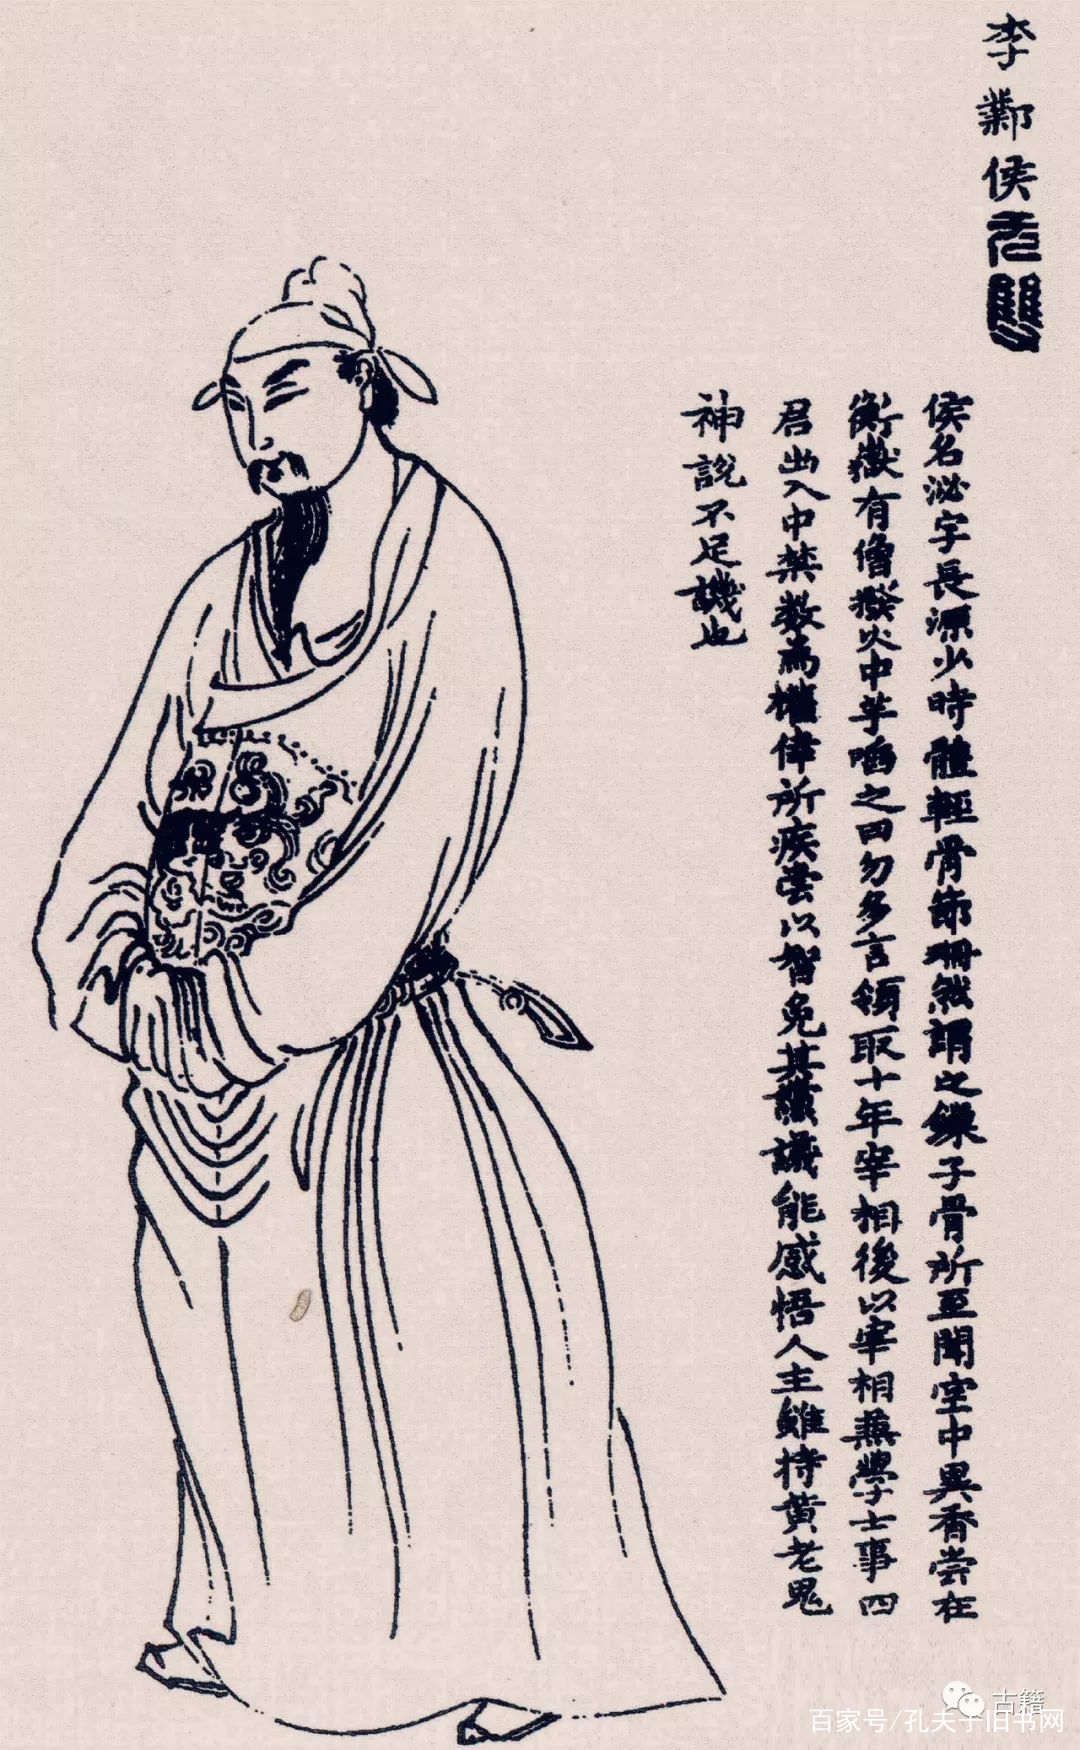 李鄴侯
無雙
侯名泌字長源少時體輕骨節珊然謂之鏁子骨所至聞空中異香嘗在
衡嶽有僧撥火中芋啗之曰勿多言領取十年宰相後以宰相兼學士事四
君出入中禁數為權倖所疾常以智免其讜議能感悟人主雖持黃老鬼
神說不足譏也
古籍
百家号/孔夫子旧书网